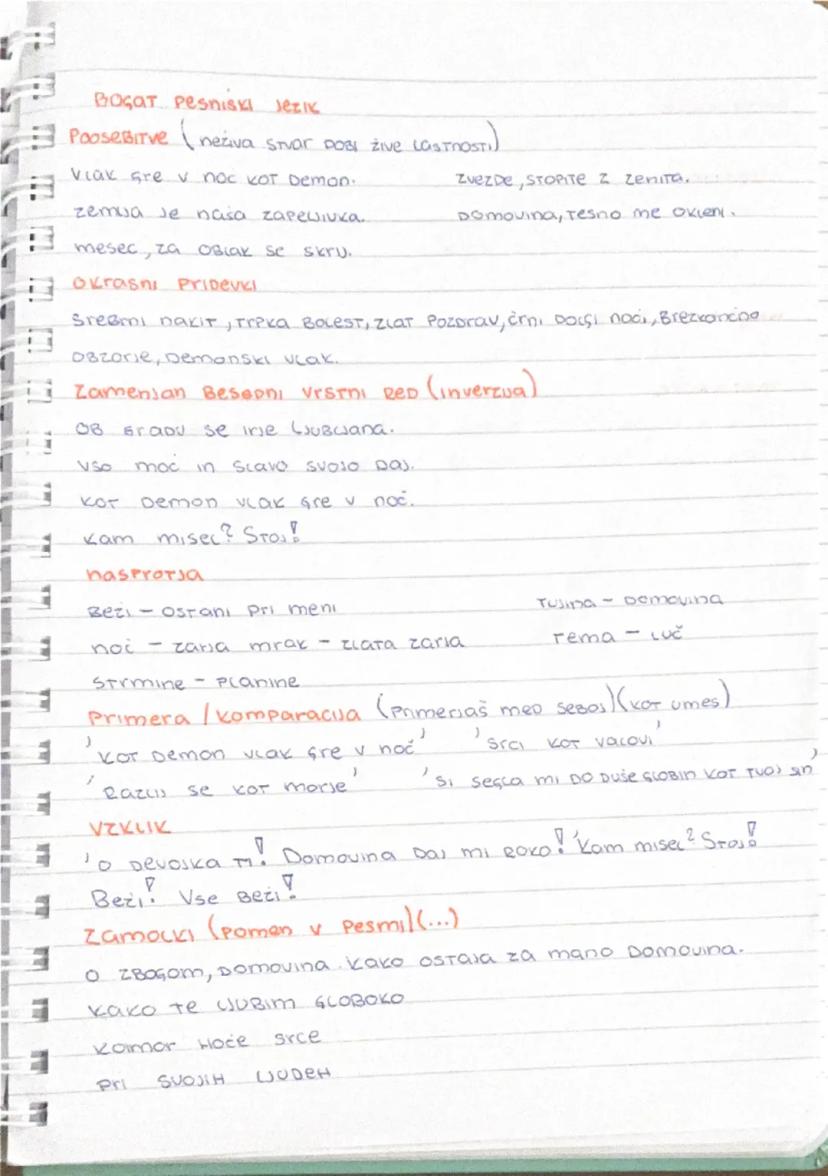 BOGAT PESNIŠKI JEZIK
POOSEBITVE (neživa stvar dobi žive lastnosti)
Vlak gre v noč kot demon. Zvezde, stopite z zenita.
Zemlja je naša zapeljivka. Domovina, tesno me okleni.
Mesec, za oblak se skrij.
OKRASNI PRIDEVKI
Srebrni nakit, trpka bolest, zlat pozdrav, črni dolgi noči, brezkončno
obzorje, demonski vlak.
ZAMENJAN BESEDNI VRSTNI RED (inverzija)
Ob gradu se Ljubljana.
Vso moč in slavo svojo daj.
Kot demon vlak gre v noč.
Kam misel? Stoj!
NASPROTJA
Beži - ostani pri meni Tujina - domovina
noč - zarja mrak - zlata zarja tema - luč
strmine - planine
PRIMERA / KOMPARACIJA (primerjaš med seboj) (kot umes)
'Kot demon vlak gre v noč' 'Srci kot valovi'
'Razlij se kot morje' 'Si segla mi do duše globin kot tvoj sin'
VZKLIK
'O devojka ti! Domovina daj mi roko! 'Kam misel? Stoj!
Beži! Vse beži!
ZAMOLKI (pomen v pesmi) (...)
O zbogom, domovina. Kako ostaja za mano domovina.
Kako te ljubim globoko
Kamor hoče srce
Pri svojih ljudeh